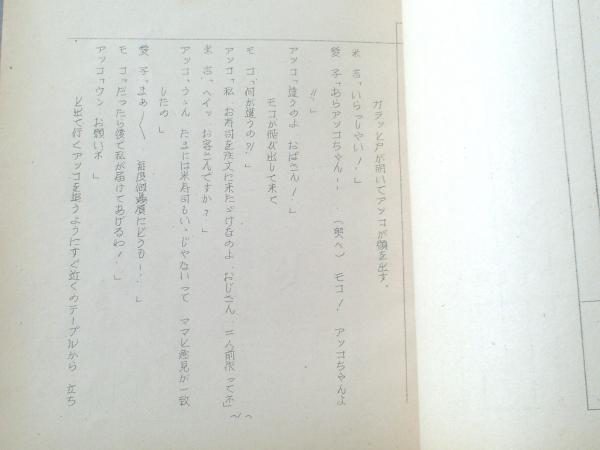 ガラッと戸が開いてアッコが顔を出す。
米 吉「いらっしゃい!」
愛 子「あらアッコちゃん!… (奥へ) モコ! アッコちゃんよ
!!」
アッコ「違うのよ おばさん!」
モコが飛び出して来て
モ コ「何が違うの?!」
アッコ「私、お寿司を注文に来ただけなのよ、おじさん、二人前作ってネ」
米 吉「ヘイッ、お客さんですか?」
アッコ「うゝん たまには米寿司もいゝじゃないって ママと意見が一致
したの」
愛 子「まあ〱 毎度御贔屓にどうも…」
モ コ「だったら後で私が届けてあげるわ!」
アッコ「ウン、お願いネ」
と出て行くアッコを追うようにすぐ近くのテーブルから 立ち